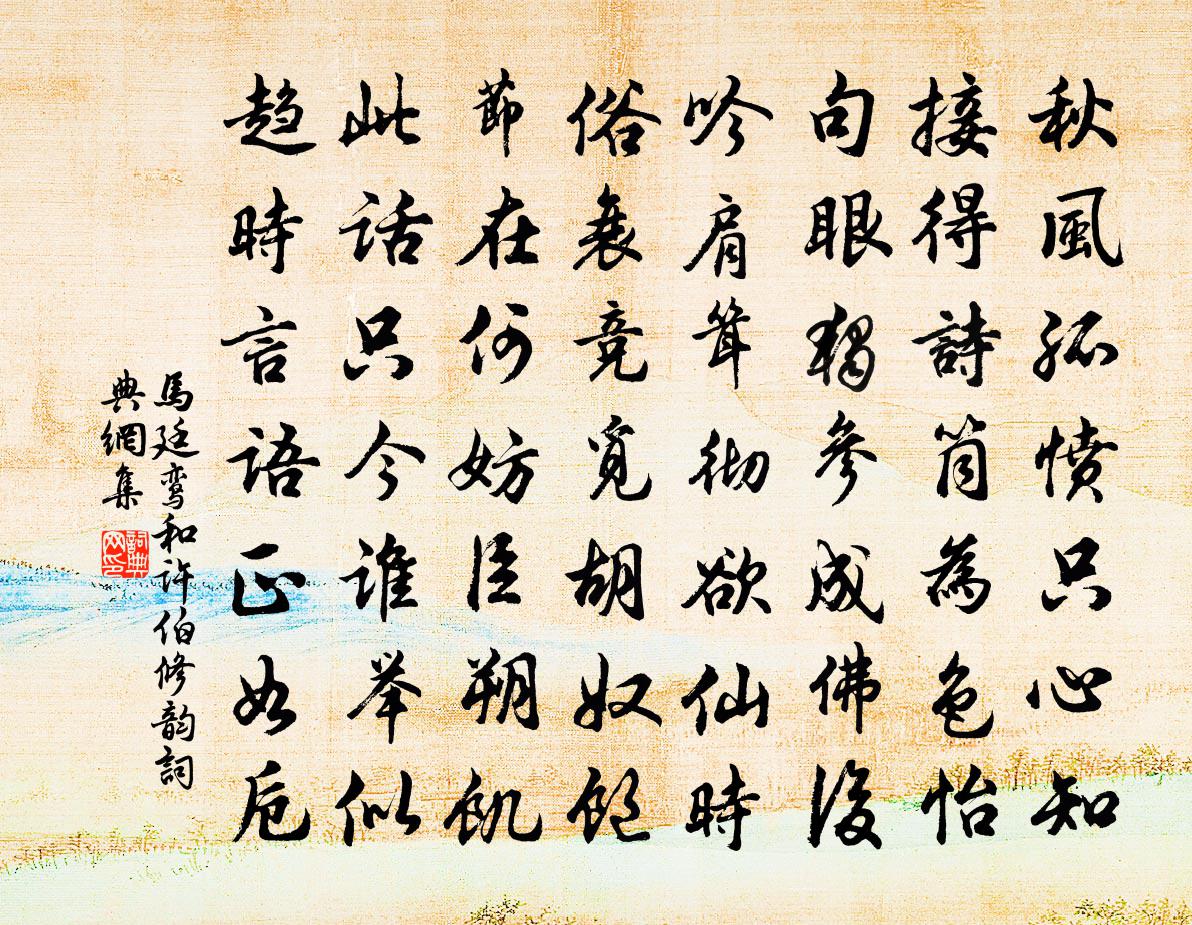 秋風孤憤只心知
接得詩筒為色怡
句眼獨參成佛後
吟肩聳徹欲仙時
俗衰竟覓胡奴飽
節在何妨臣朔飢
此話只今誰举似
趋時言語正如卮
馬廷鸾和许伯修韵詞
典網集
詞典网印